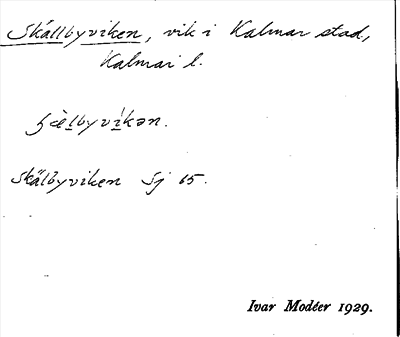 Skällbyviken, vik i Kalmar stad,
Kalmar l.
Skälbyviken Sj 65.
Ivar Modéer 1929.